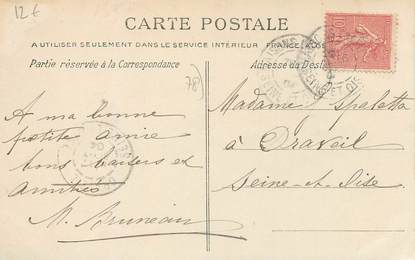 12€
CARTE POSTALE
A UTILISER SEULEMENT DANS LE SERVICE INTÉRIEUR
Partie réservée à la Correspondance
Adresse du Desti
78)
A ma bonne
petite amie
bons baisers et
Amitiés
M. Bruneau
Madame Spaletta
à Draveil
Seine-et-Oise